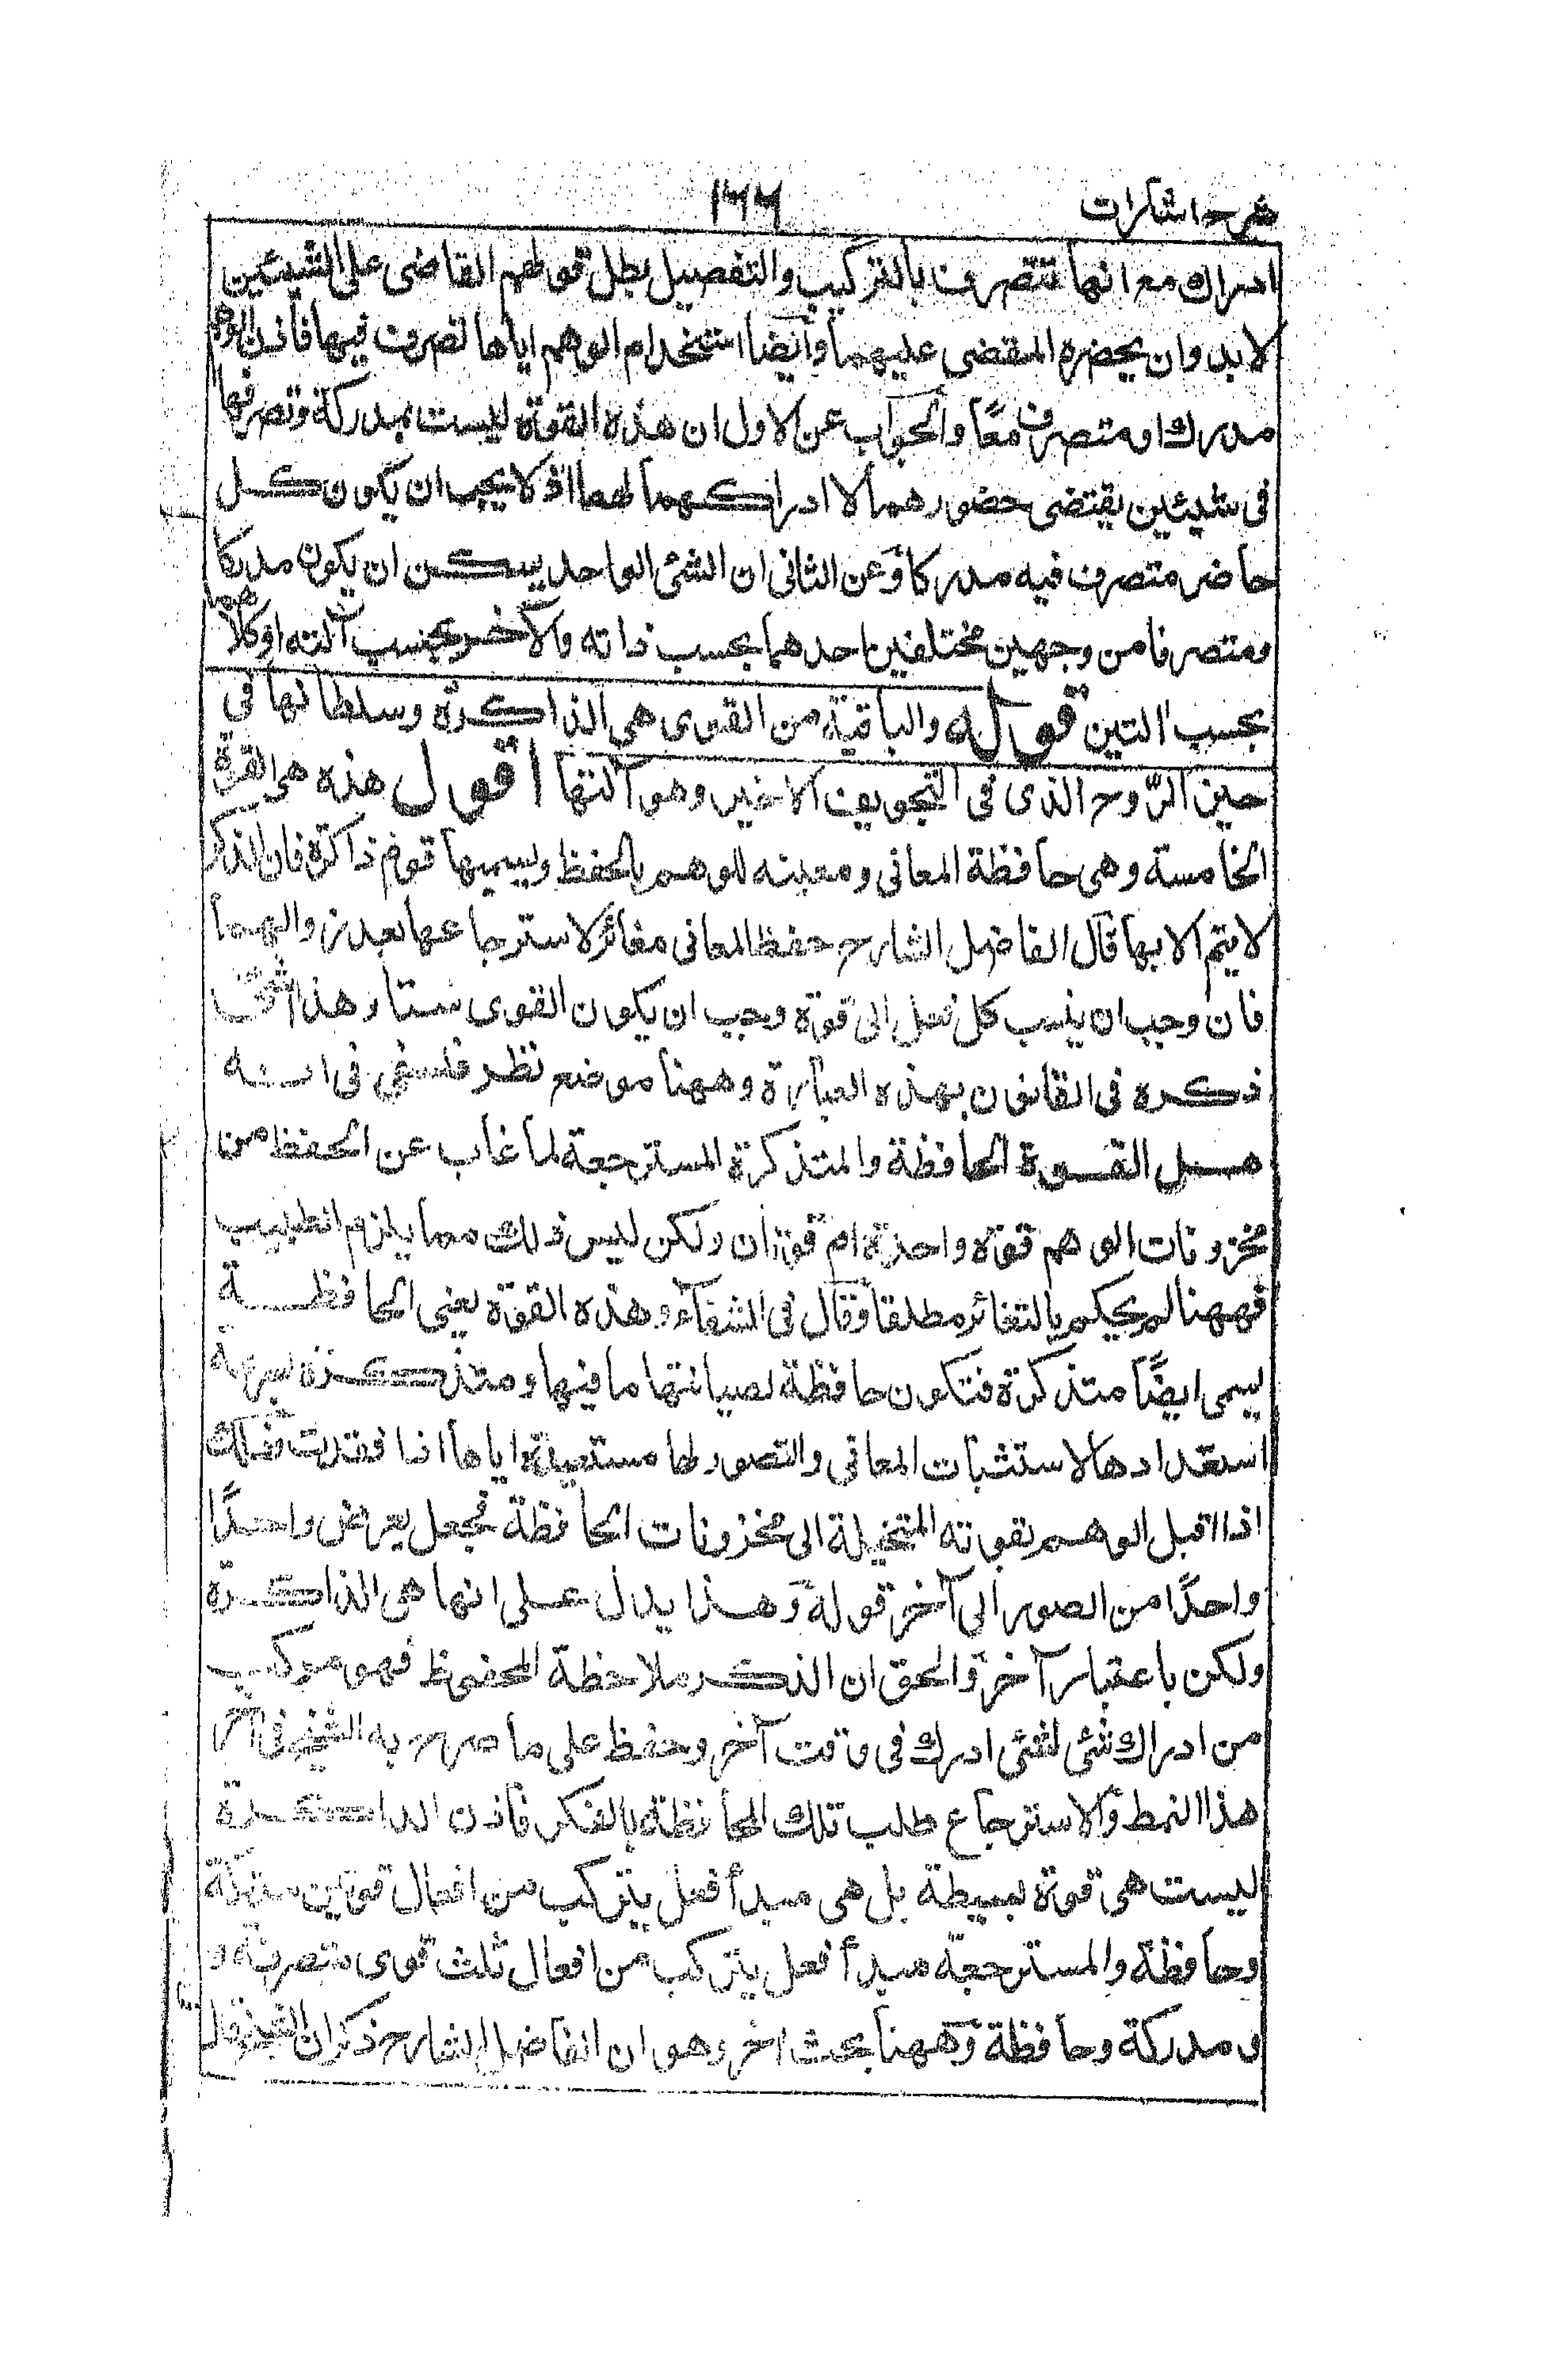 شرح اشارات
١٦٦
ادراك مع انها تتصرف بالتركيب والتفصيل بطل قولهم القاضى على الشيئين
لابد وان يحضره المقضى عليهما وايضا استخدام الوهم اياها تصرف فيها فاذن الوهم
مدرك ومتصرف معًا والجواب عن الاول ان هذه القوة ليست بمدركة وتصرفها
فى شيئين يقتضى حضورهما لا ادراكهما لهما اذ لا يجب ان يكون كل
حاضر متصرف فيه مدركا وعن الثانى ان الشئ الواحد يمكن ان يكون مدركا
ومتصرفا من وجهين مختلفين احدهما بحسب ذاته والآخر بحسب آلته او كلاهما
بحسب آلتين قوله والباقية من القوى هى الذاكرة وسلطانها فى
حيز الرّوح الذى فى التجويف الاخير وهو آلتها اقول هذه هى القوة
الخامسة وهى حافظة المعانى ومعينه للوهم بالحفظ ويسميها قوم ذاكرة فان الذكر
لا يتم الا بها قال الفاضل الشارح حفظ المعانى مغائر لاسترجاعها بعد زوالهما
فان وجب ان ينسب كل فعل الى قوة وجب ان يكون القوى ستا وهذا الشك
ذكره فى القانون بهذه العبارة وههنا موضع نظر فلسفى فى انه
هل القوة الحافظة والمتذكرة المسترجعة لما غاب عن الحفظ من
مخزونات الوهم قوة واحدة ام قوتان ولكن ليس ذلك مما يلزم الطبيب
فههنا لم يحكم بالتغائر مطلقا وقال فى الشفاء وهذه القوة يعنى الحافظة
يسمى ايضًا متذكرة فتكون حافظة لصيانتها ما فيها ومتذكرة لسرعة
استعدادها لاستثبات المعانى والتصور لها مستعيدة اياها اذا فقدت وذلك
اذا اقبل الوهم بقوته المتخيلة الى مخزونات الحافظة فجعل يعرض واحدًا
واحدًا من الصور الى آخر قوله وهذا يدل على انها هى الذاكرة
ولكن باعتبار آخر والحق ان الذكر ملاحظة المحفوظ فهو مركب
من ادراك شئ لشئ ادرك فى وقت آخر وحفظ على ما صرح به الشيخ فى آخر
هذا النمط والاسترجاع طلب تلك الملاحظة بالفكر فاذن الذاكرة
ليست هى قوة بسيطة بل هى مبدأ فعل يتركب من افعال قوتين مدركة
وحافظة والمسترجعة مبدأ فعل يتركب من افعال ثلث قوى متصرفة و
و مدركة وحافظة وههنا بحث اخر وهو ان الفاضل الشارح ذكر ان الشيخ